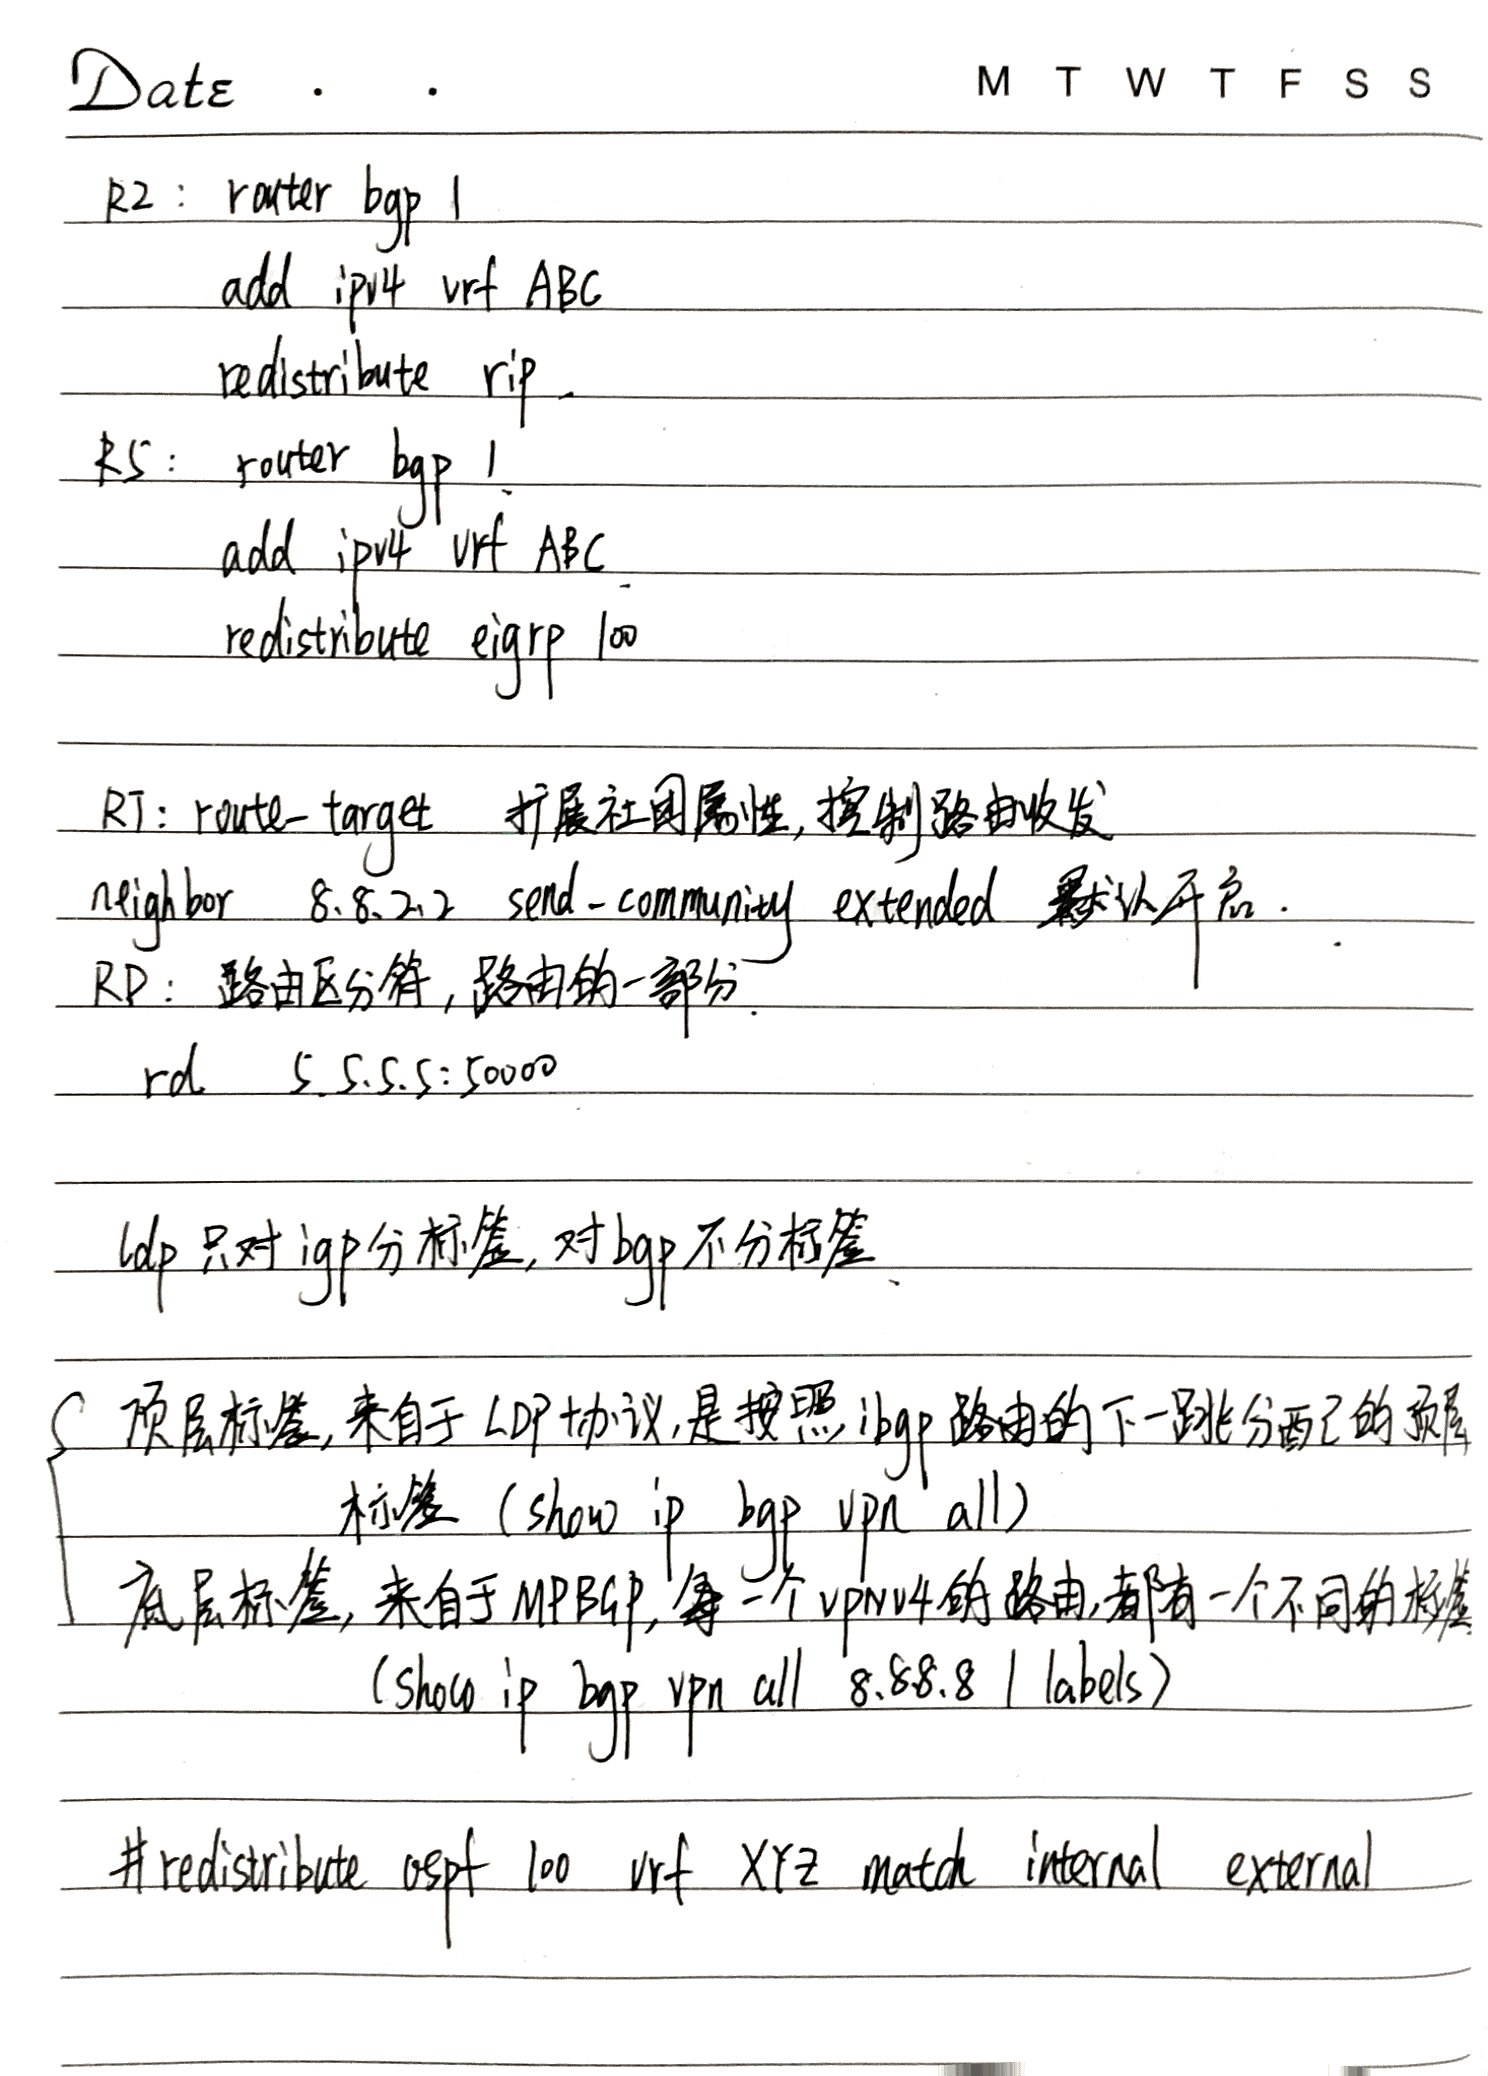 Date . .
M T W T F S S
R2: router bgp 1
add ipv4 vrf ABC
redistribute rip.
R5: router bgp 1
add ipv4 vrf ABC
redistribute eigrp 100
RT: route-target 扩展社团属性,控制路由收发
neighbor 8.8.2.2 send-community extended 默认开启.
RD: 路由区分符,路由的一部分.
rd 5.5.5.5:50000
ldp只对igp分标签,对bgp不分标签
顶层标签,来自于LDP协议,是按照ibgp路由的下一跳分配的顶层
标签 (show ip bgp vpn all)
底层标签,来自于MPBGP,每一个vpnv4的路由,都有一个不同的标签
(show ip bgp vpn all 8.8.8.8 | labels)
#redistribute ospf 100 vrf XYZ match internal external